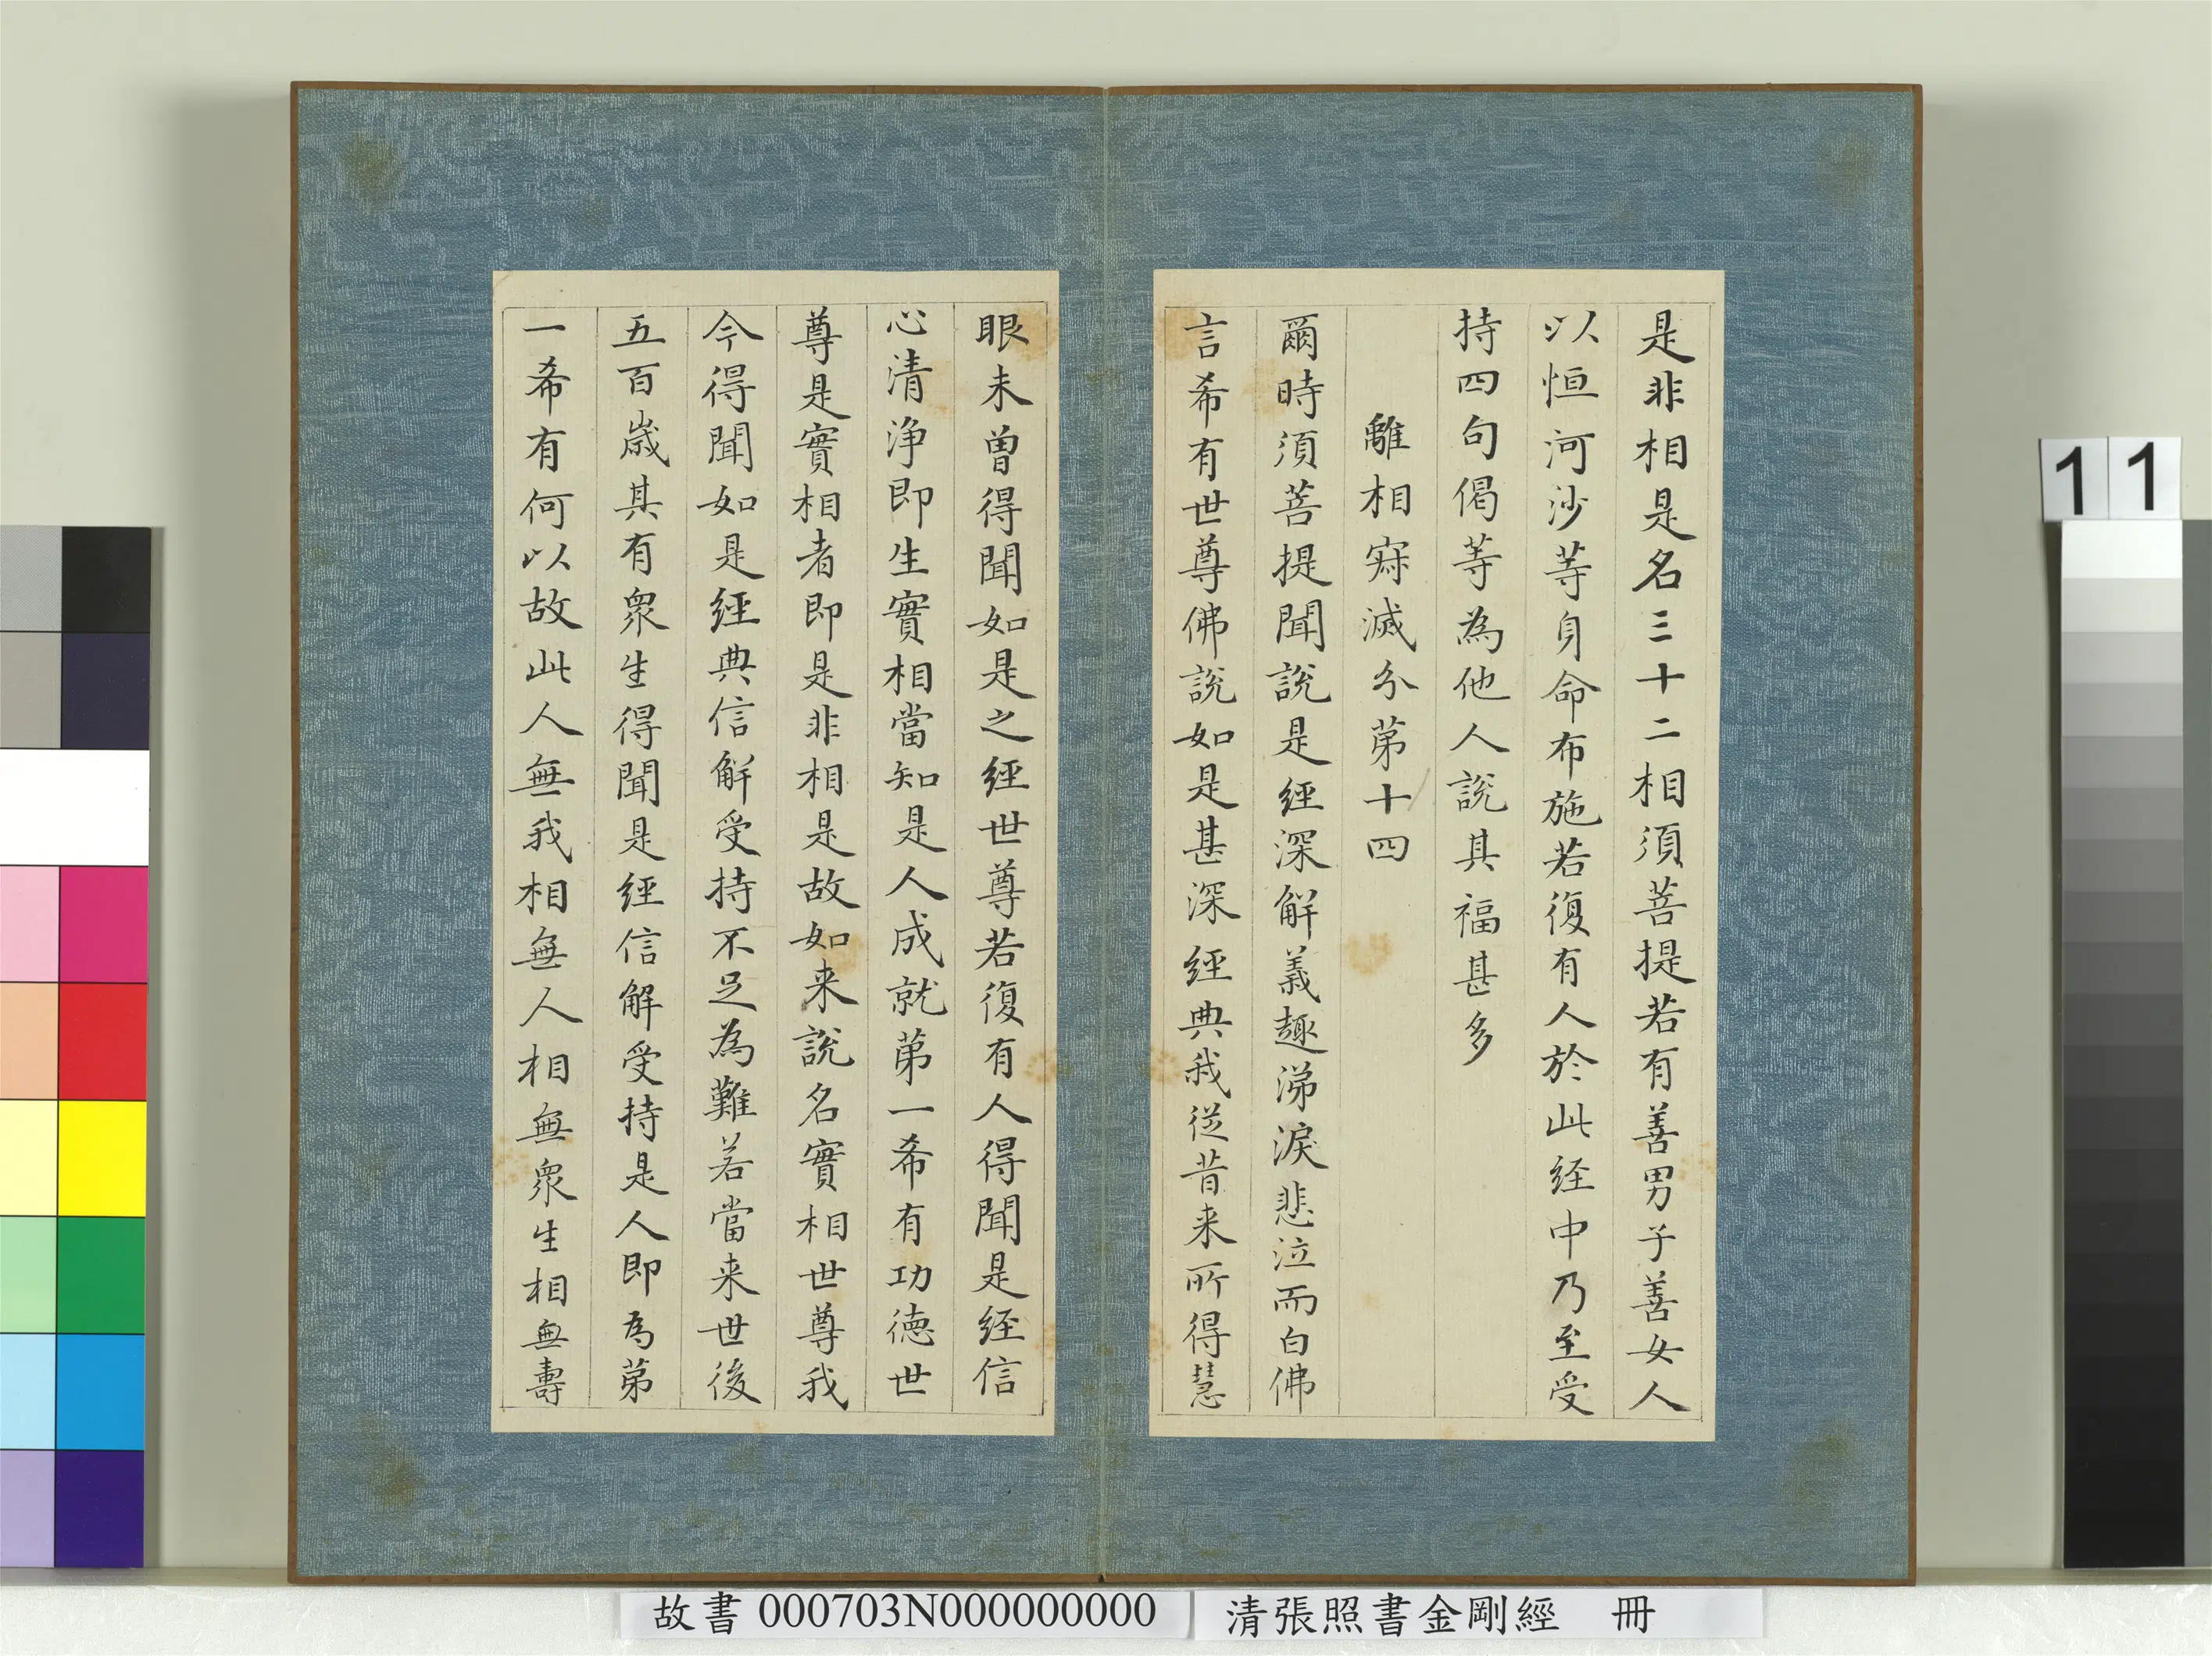 是非相是名三十二相須菩提若有善男子善女人
以恒河沙等身命布施若復有人於此経中乃至受
持四句偈等為他人說其福甚多
離相寂滅分第十四
爾時須菩提聞說是經深解義趣涕淚悲泣而白佛
言希有世尊佛說如是甚深經典我從昔来所得慧
眼未曾得聞如是之經世尊若復有人得聞是経信
心清淨即生實相當知是人成就第一希有功德世
尊是實相者即是非相是故如来說名實相世尊我
今得聞如是經典信解受持不足為難若當来世後
五百歲其有衆生得聞是經信解受持是人即為第
一希有何以故此人無我相無人相無衆生相無壽
11
故書 000703N000000000
清張照書金剛經 冊